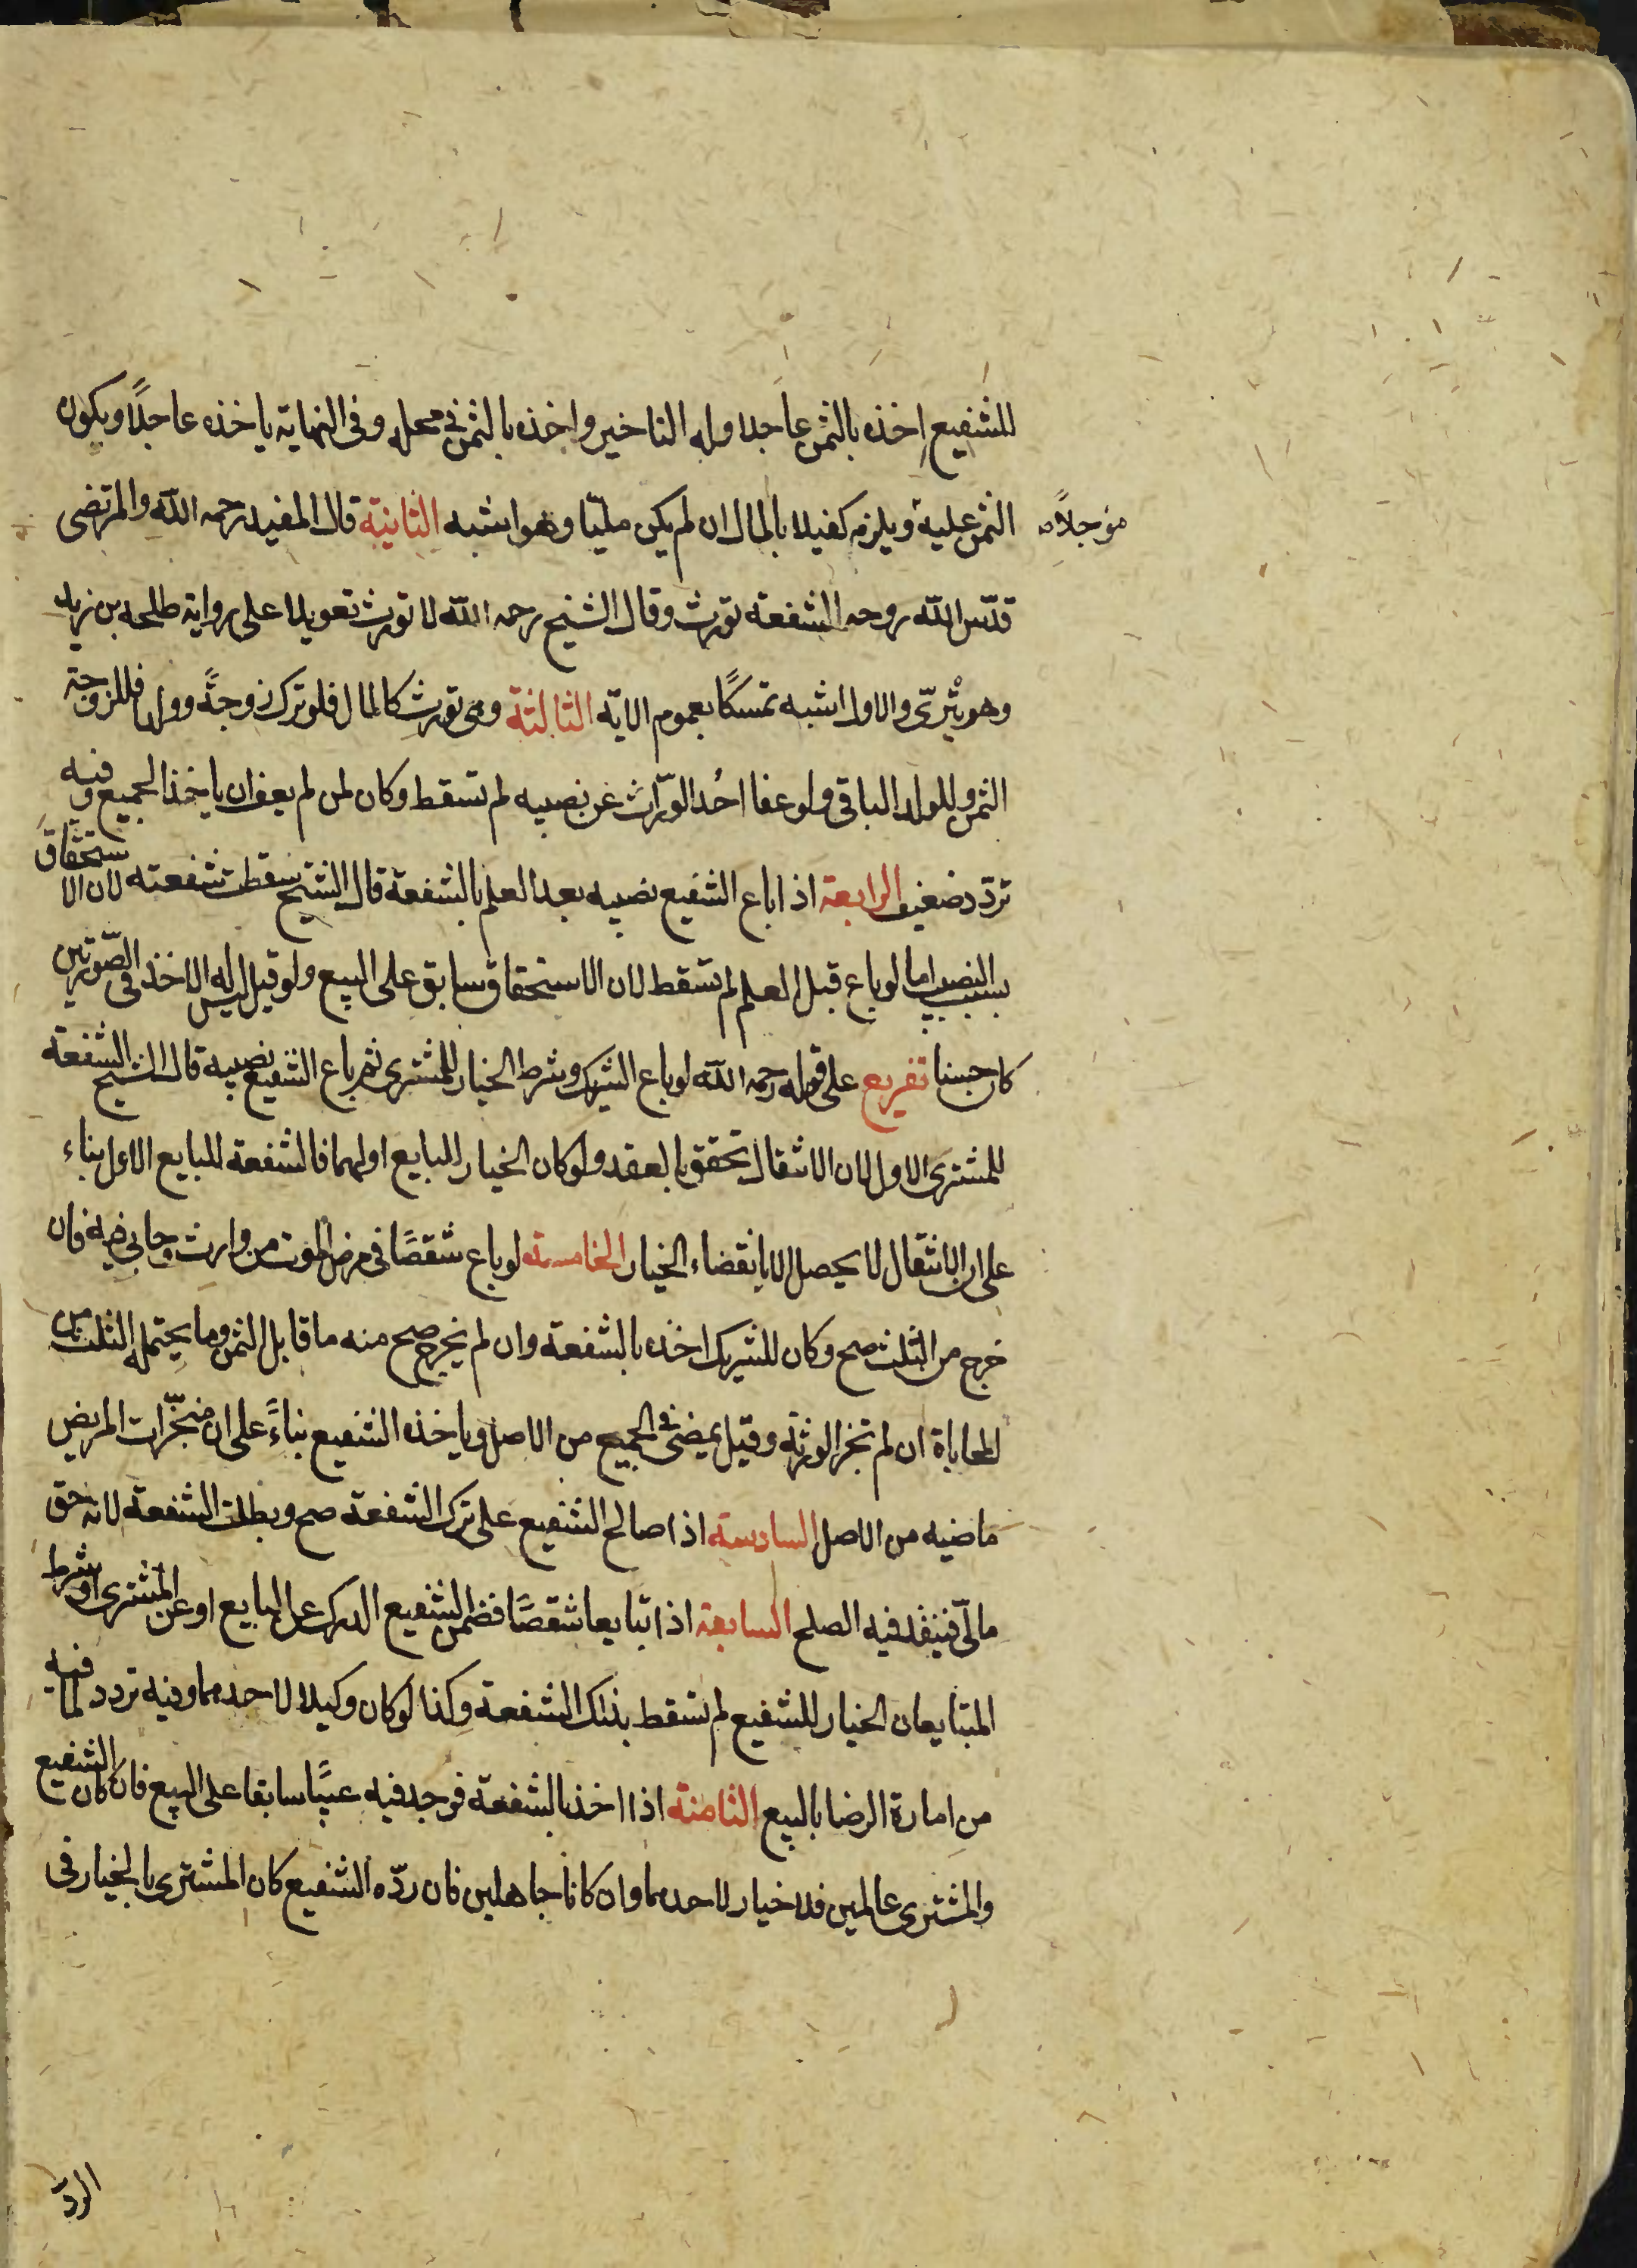 للشفيع اخذه بالثمن عاجلا وله التاخير واخذه بالثمن في محله وفى النهاية ياخذه عاجلًا ويكون
الثمن عليه ويلزم كفيلا بالمال ان لم يكن مليّا وهو اشبه الثانية قال المفيد رحمه الله والمرتضى
مؤجلًا
قدّس الله روحه الشفعة تورث وقال الشيخ رحمه الله لا تورث تعويلا على رواية طلحه بن زيد
وهو بترىّ والاول اشبه تمسكًا بعموم الاية الثالثة وهى تورث كالمال فلو ترك زوجةً وولدا فللزوجة
الثمن وللولد الباقى ولو عفا احُد الورّاث عن نصيبه لم تسقط وكان لمن لم يعف ان ياخذ الجميع وفيه
تردّد ضعيف الرابعة اذا باع الشفيع نصيبه بعد العلم بالشفعة قال الشيخ سقطت شفعته لان الاستحقاق
بسبب النصيب اما لو باع قبل العلم لم تسقط لان الاستحقاق سابق على البيع ولو قيل ليس له الاخذ فى الصّورتين
كان حسنا تفريع على قوله رحمه الله لو باع الشريك وشرط الخيار للمشترى ثم باع الشفيع نصيبه قال الشيخ الشفعة
للمشترى الاول لان الانتقال تحقق بالعقد ولو كان الخيار للبايع او لهما فالشفعة للبايع الاول بناء
على ان الانتقال لا يحصل الا بانقضاء الخيار الخامسة لو باع شقصًا فى مرض الموت من وارث وحابى فيه فان
خرج من الثلث صح وكان للشريك اخذه بالشفعة وان لم يخرج صح منه ما قابل الثمن وما يحتمله الثلث من
المحاباة ان لم تجز الورثة وقيل يمضى فى الجميع من الاصل وياخذه الشفيع بناءً على ان منجّزات المريض
ماضيه من الاصل السادسة اذا صالح الشفيع على ترك الشفعة صح وبطلت الشفعة لانه حق
مالىّ فينفذ فيه الصلح السابعة اذا تبايعا شقصًا فضمن الشفيع الدرك عن البايع او عن المشترى او شرط
المتبايعان الخيار للشفيع لم تسقط بذلك الشفعة وكذا لو كان وكيلا لاحدهما وفيه تردد لما فيه
من امارة الرضا بالبيع الثامنة اذا اخذ بالشفعة فوجد فيه عيبًا سابقا على البيع فان كان الشفيع
والمشترى عالمين فلا خيار لاحدهما وان كانا جاهلين فان ردّه الشفيع كان المشترى بالخيار فى
الردّ